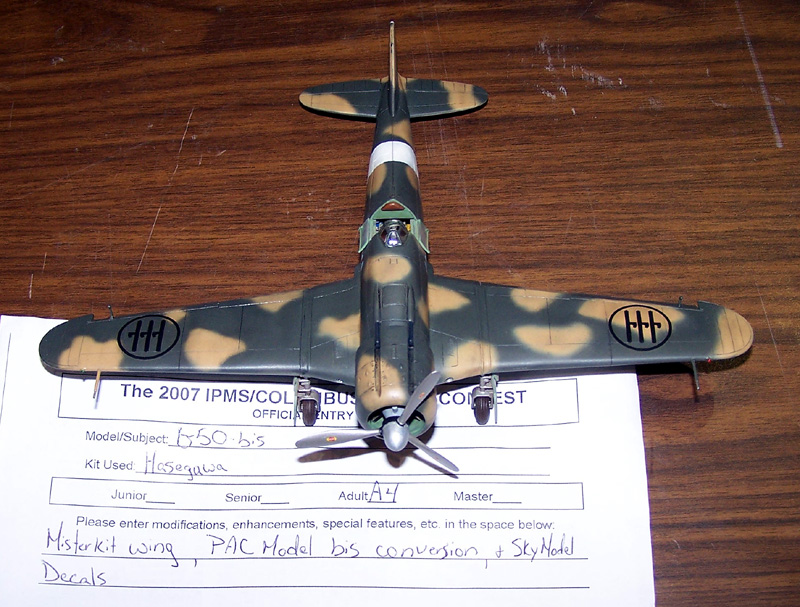 The 2007 IPMS/COL BUS CONTEST
OFFICIAL ENTRY
Model/Subject: G-50-bis
Kit Used: Hasegawa
Junior____ Senior____ Adult A4 Master____
Please enter modifications, enhancements, special features, etc. in the space below:
Misterkit wing, PAC Model bis conversion, & Sky Model
Decals